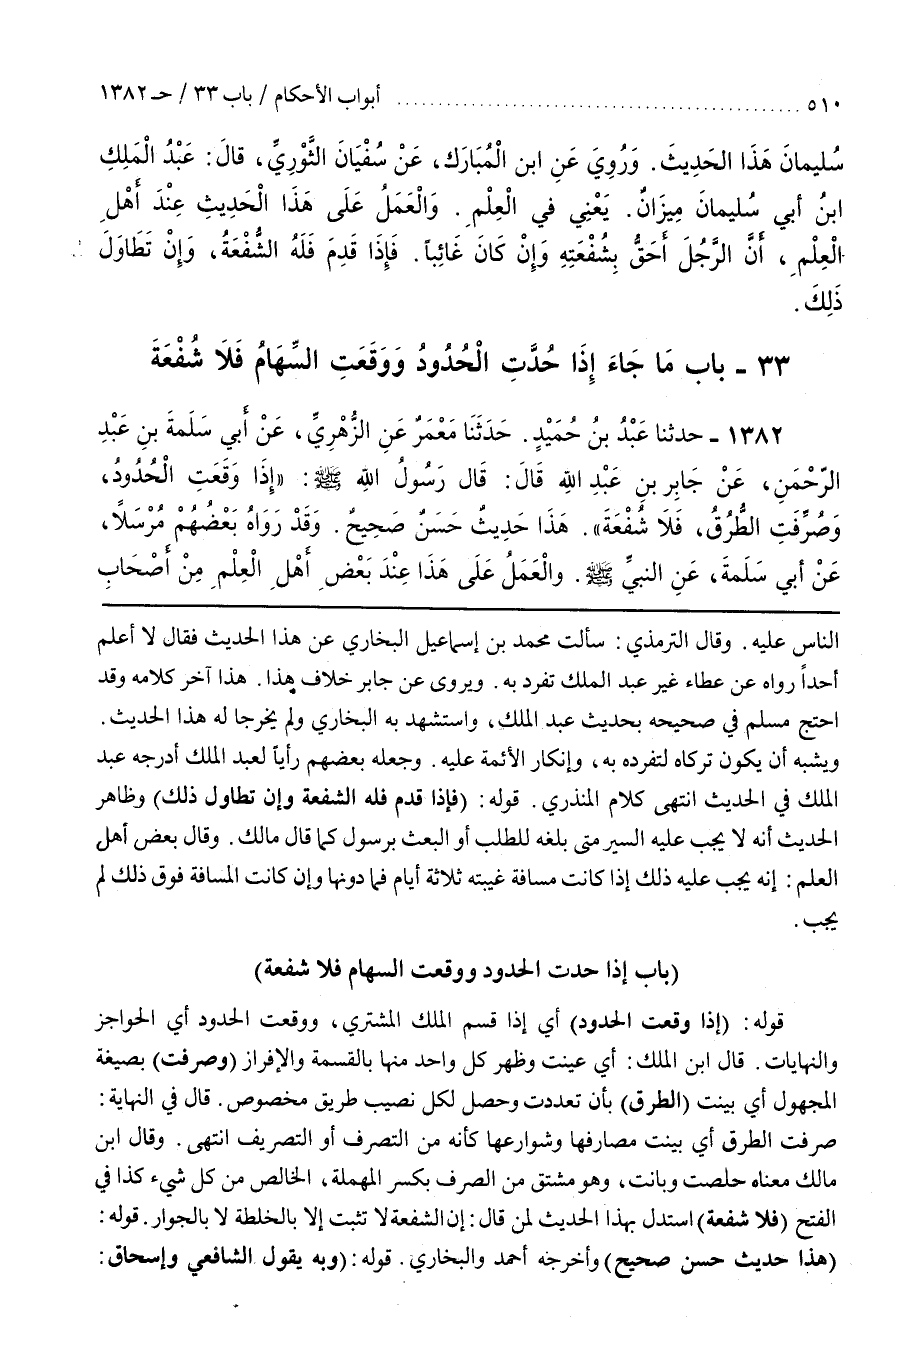 ٥١٠ ........................................ أبواب الأحكام / باب ٣٣ / حـ ١٣٨٢
سُليمانَ هَذَا الحَدِيثَ. وَرُوِيَ عَنِ ابنِ الْمُبَارَكِ، عَنْ سُفْيَانَ الثَّوْرِيِّ، قالَ: عَبْدُ الْمَلِكِ
ابنُ أبي سُليمانَ مِيزَانٌ. يَعْنِي في الْعِلْمِ. وَالْعَمَلُ عَلَى هَذَا الْحَدِيثِ عِنْدَ أَهْلِ
الْعِلْمِ، أَنَّ الرَّجُلَ أَحَقُّ بِشُفْعَتِهِ وَإِنْ كَانَ غَائِباً. فَإِذَا قَدِمَ فَلَهُ الشُّفْعَةُ، وَإِنْ تَطَاوَلَ
ذَلِكَ.
٣٣ ـ باب مَا جَاءَ إِذَا حُدَّتِ الْحُدُودُ وَوَقَعَتِ السِّهَامُ فَلَا شُفْعَةَ
١٣٨٢ ـ حدثنا عَبْدُ بنُ حُمَيْدٍ. حَدَثَنَا مَعْمَرٌ عَنِ الزُّهْرِيِّ، عَنْ أَبي سَلَمَةَ بنِ عَبْدِ
الرَّحْمَنِ، عَنْ جَابِرِ بنِ عَبْدِ الله قَالَ: قَالَ رَسُولُ الله ﷺ: «إِذَا وَقَعَتِ الْحُدُودُ،
وَصُرِّفَتِ الطُّرُقُ، فَلَا شُفْعَةَ». هَذَا حَدِيثٌ حَسَنٌ صَحِيحٌ. وَقَدْ رَوَاهُ بَعْضُهُمْ مُرْسَلاً،
عَنْ أبي سَلَمَةَ، عَنِ النبيِّ ﷺ. والْعَمَلُ عَلَى هَذَا عِنْدَ بَعْضِ أَهْلِ الْعِلْمِ مِنْ أَصْحَابِ
الناس عليه. وقال الترمذي: سألت محمد بن إسماعيل البخاري عن هذا الحديث فقال لا أعلم
أحداً رواه عن عطاء غير عبد الملك تفرد به. ويروى عن جابر خلاف هذا. هذا آخر كلامه وقد
احتج مسلم في صحيحه بحديث عبد الملك، واستشهد به البخاري ولم يخرجا له هذا الحديث.
ويشبه أن يكون تركاه لتفرده به، وإنكار الأئمة عليه. وجعله بعضهم رأياً لعبد الملك أدرجه عبد
الملك في الحديث انتهى كلام المنذري. قوله: (فإذا قدم فله الشفعة وإن تطاول ذلك) وظاهر
الحديث أنه لا يجب عليه السير متى بلغه للطلب أو البعث برسول كما قال مالك. وقال بعض أهل
العلم: إنه يجب عليه ذلك إذا كانت مسافة غيبته ثلاثة أيام فما دونها وإن كانت المسافة فوق ذلك لم
يجب.
(باب إذا حدت الحدود ووقعت السهام فلا شفعة)
قوله: (إذا وقعت الحدود) أي إذا قسم الملك المشتري، ووقعت الحدود أي الحواجز
والنهايات. قال ابن الملك: أي عينت وظهر كل واحد منها بالقسمة والإفراز (وصرفت) بصيغة
المجهول أي بينت (الطرق) بأن تعددت وحصل لكل نصيب طريق مخصوص. قال في النهاية:
صرفت الطرق أي بينت مصارفها وشوارعها كأنه من التصرف أو التصريف انتهى. وقال ابن
مالك معناه خلصت وبانت، وهو مشتق من الصرف بكسر المهملة، الخالص من كل شيء كذا في
الفتح (فلا شفعة) استدل بهذا الحديث لمن قال: إن الشفعة لا تثبت إلا بالخلطة لا بالجوار. قوله:
(هذا حديث حسن صحيح) وأخرجه أحمد والبخاري. قوله: (وبه يقول الشافعي وإسحاق: